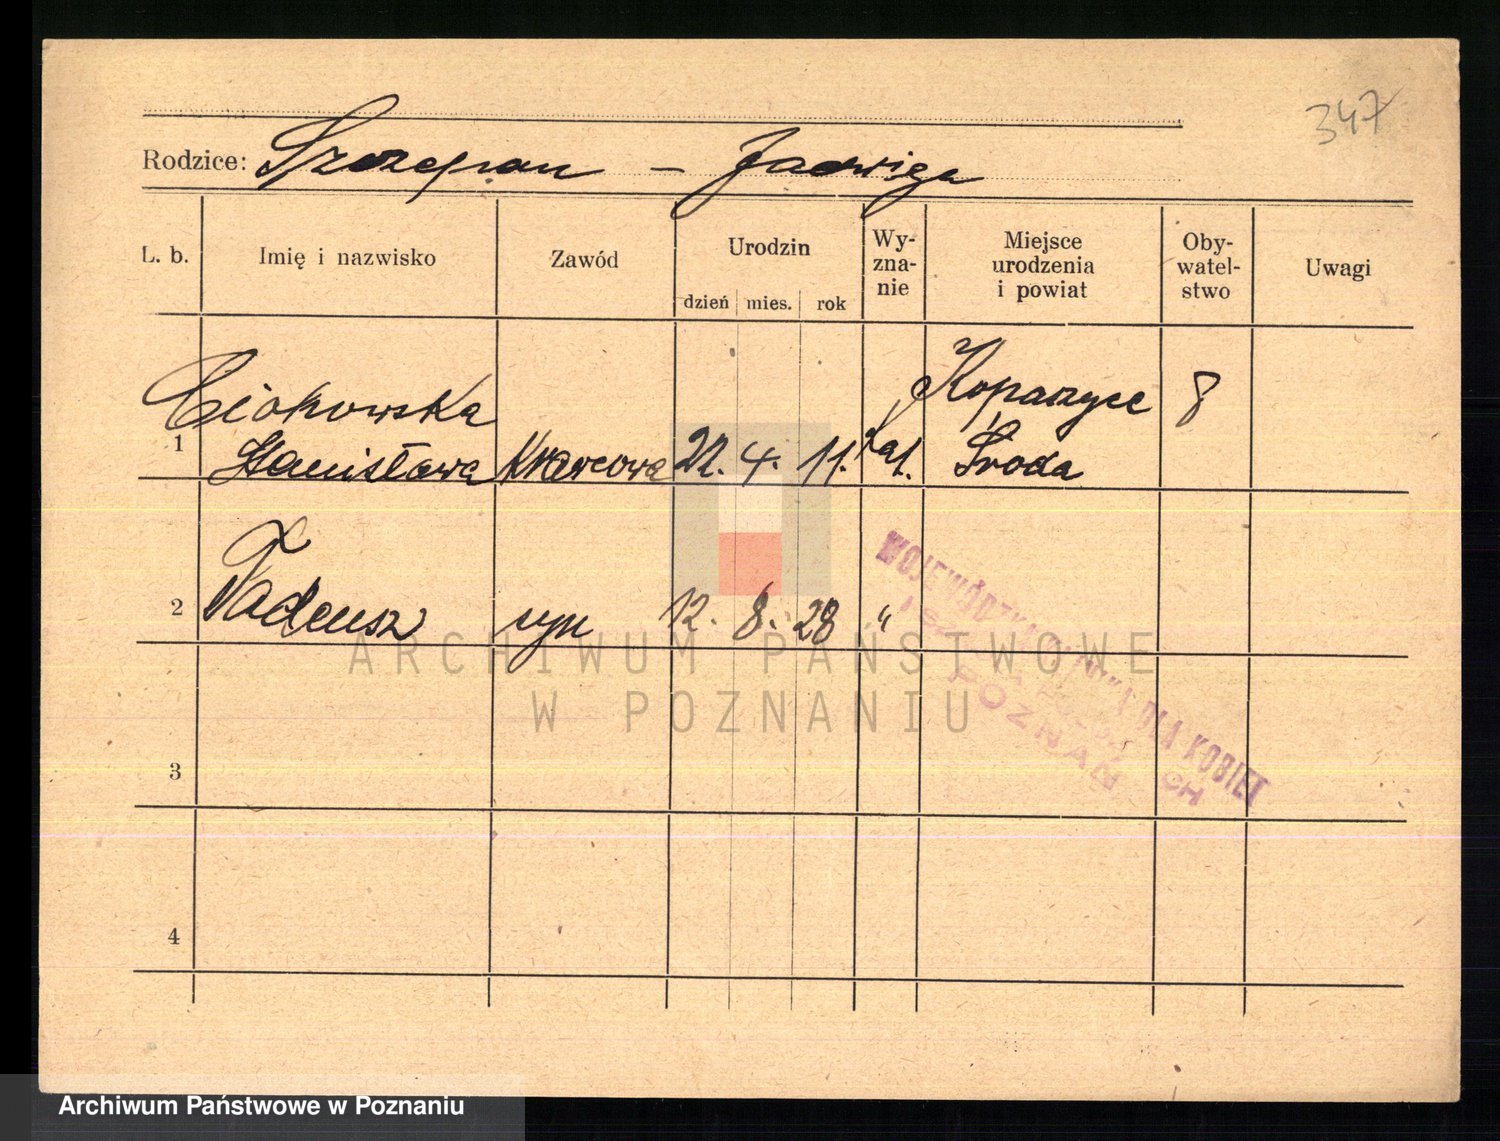 347
Rodzice: Szczepan – Jadwiga
L. b. Imię i nazwisko Zawód Urodzin dzień mies. rok Wy-zna-nie Miejsce urodzenia i powiat Oby-watel-stwo Uwagi
Ciokowska Kopaszyce
1 Stanisława Krawcowa 22. 4. 11. kat. Środa
2 Tadeusz syn 12. 8. 28 "
WOJEWÓDZKA DLA KOBIET
POZNAŃ
3
4
ARCHIWUM PAŃSTWOWE
W POZNANIU
Archiwum Państwowe w Poznaniu